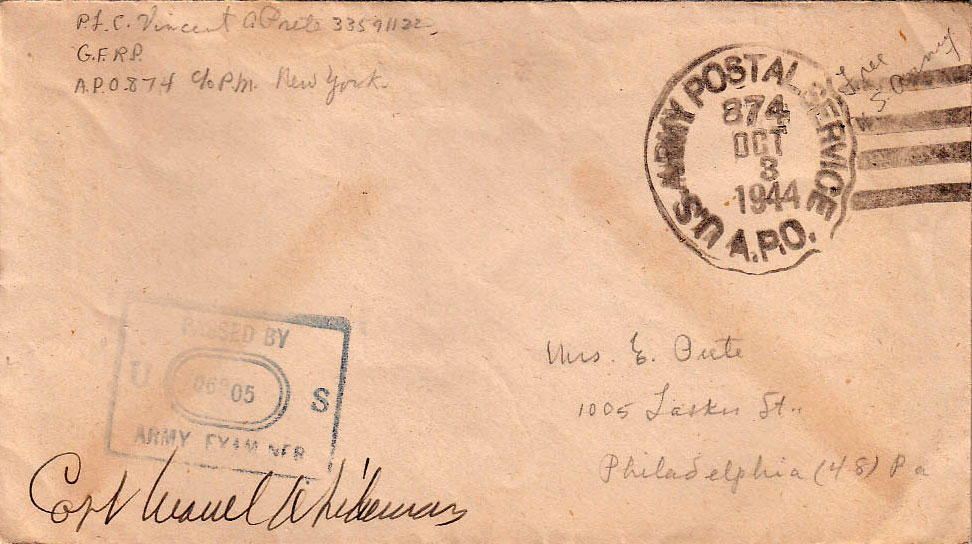 Pf.C. Vincent A Prete 33591122
G.F.R.P.
A.P.O. 874 c/o P.M. New York
Free
S Army
U.S. ARMY POSTAL SERVICE
874
OCT
3
1944
A.P.O.
PASSED BY
U 05 S
ARMY EXAMINER
Mrs. E. Prete
1005 St.
Philadelphia (48) Pa
Capt